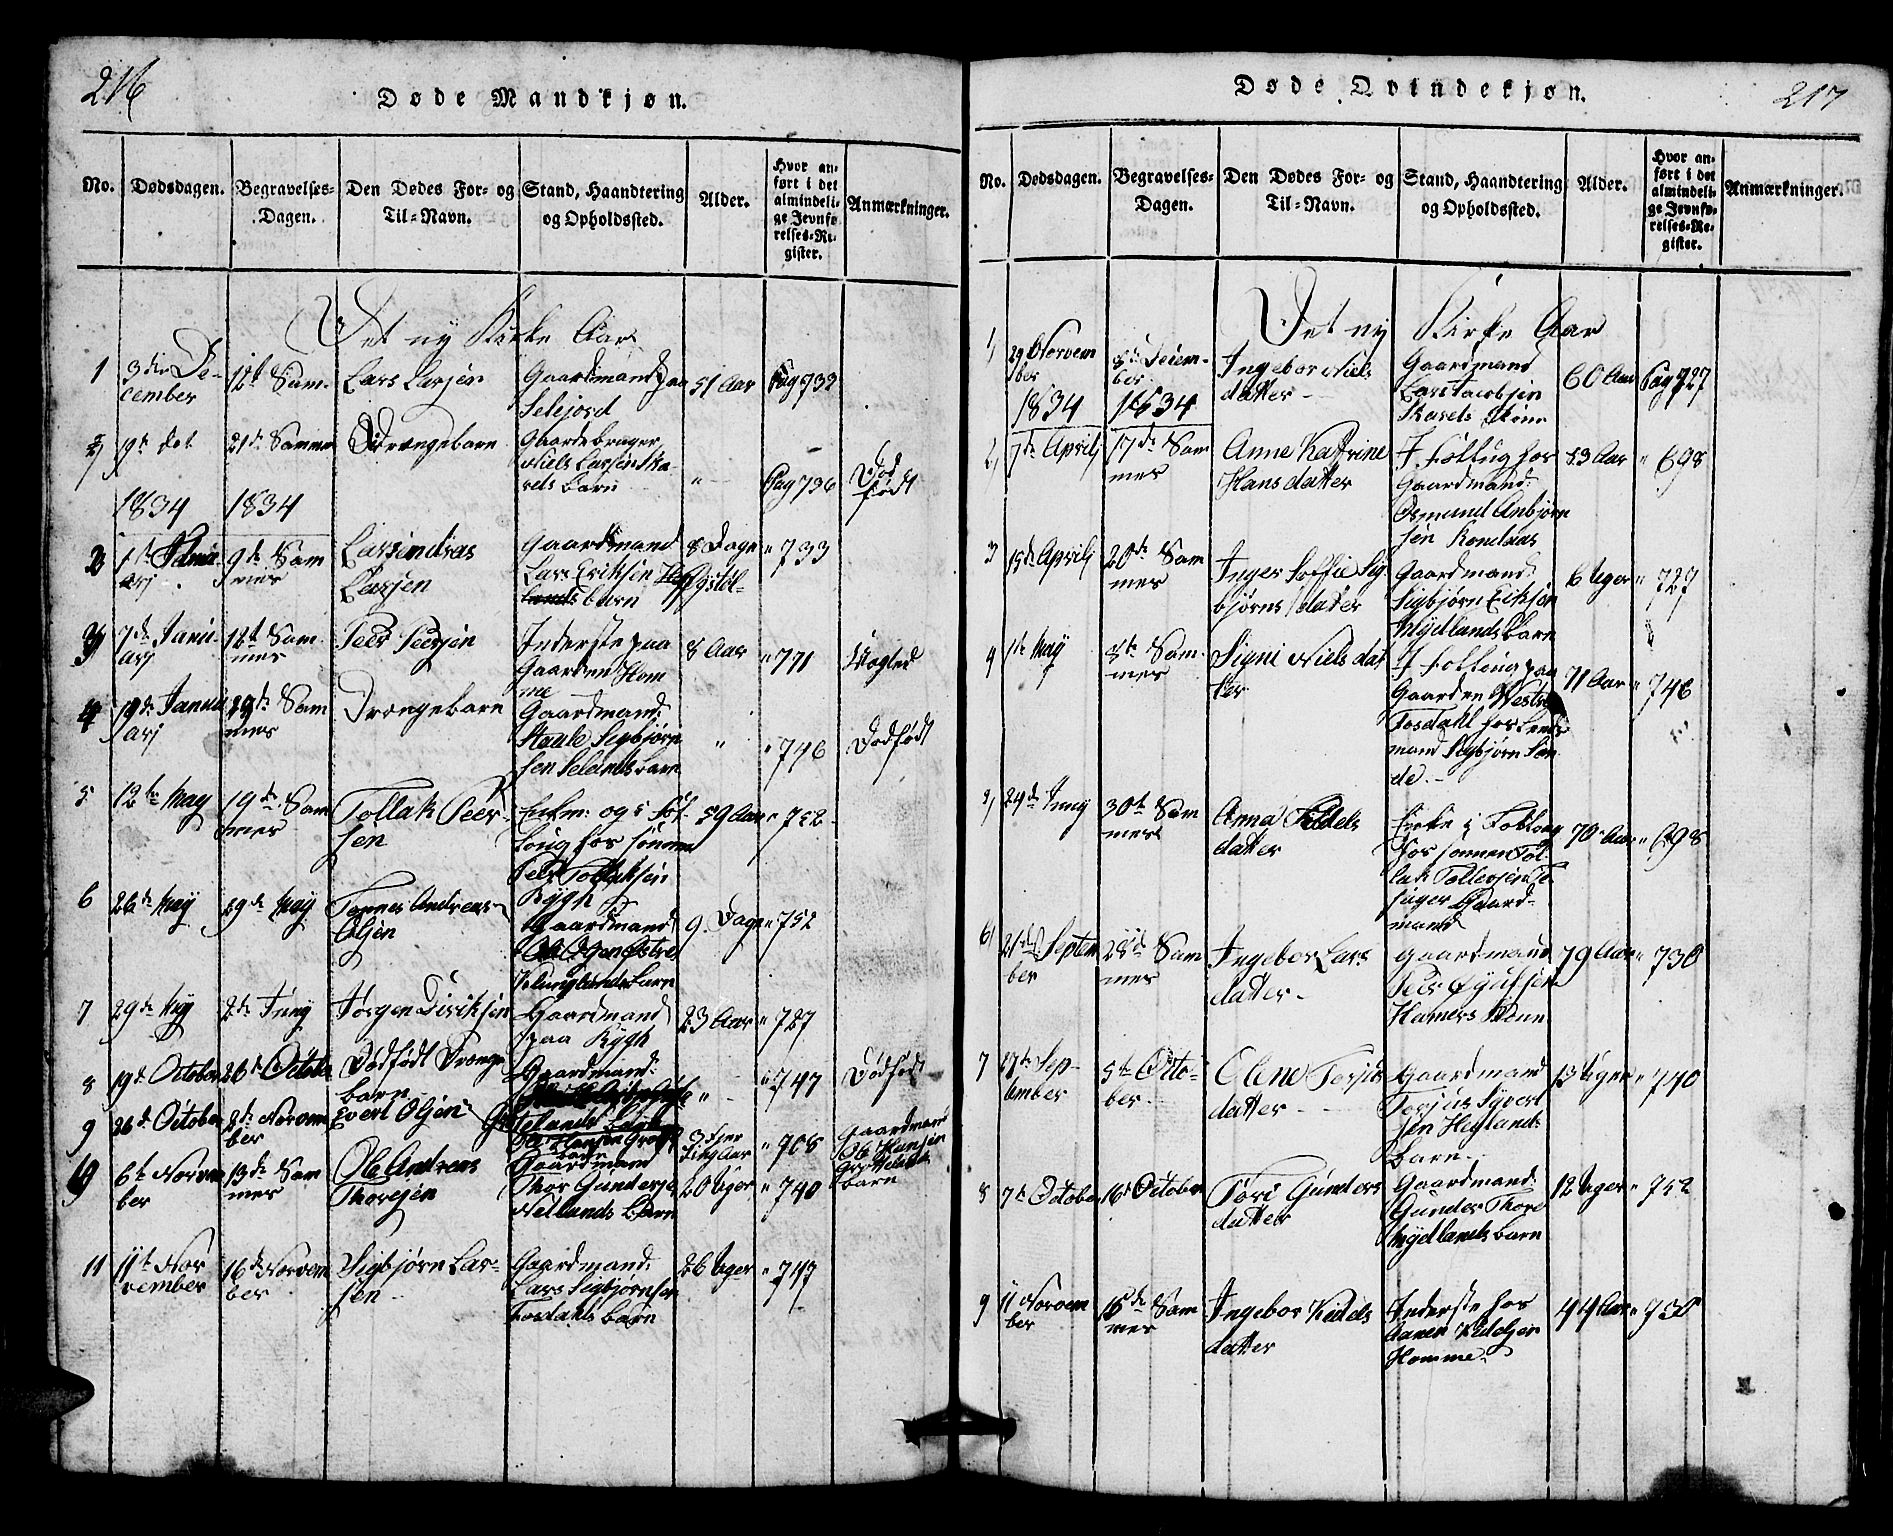 216
Døde Mandkjøn.
No. Dødsdagen. Begravelses-Dagen. Den Dødes For- og Til-Navn. Stand, Haandtering og Opholdssted. Alder. Hvor anført i det almindelige Jevnførelses-Register. Anmærkninger.
Det ny Kirke Aar
1 3die December 12t Sam. Lars Larsen Gaardmand paa Selejord 51 Aar Pag 732
2 19de det 21de Samme Drengebarn Gaardebruger Niels Larsen Skarels barn " Pag 736 Død født
1834 1834
3 1te Januarj 9de Sammes Larsindreas Larsen Gaardmand Lars Eriksen barn 8 Dage " 733
3 7de Januarj 12t Sammes Peer Peersen Inderste paa Gaarden Homme 8 Aar " 771
4 19de Januarj 29de Sammes Drengebarn Gaardmand Staale Sigbjørnsen Selands barn " " 746 Dødfødt
5 12te May 19de Sammes Tollak Peersen og i Følloug hos sønnen Peer Tollaksen Rygh 59 Aar " 752
6 26de May 29de May Tønnes Andreas Olsen Gaardmand Ole Østre Klunglands barn 9 Dage " 752
7 29de May 2de Juny Jørgen Diriksen Gaardmand paa Rygh 23 Aar " 727
8 19de October 26de October Dødfødt Drengebarn Gaardmand " " 747 Dødfødt
9 26de October 2de November Evert Olsen Ole Hansen barn 3 Fjerding Aar " 708 Gaardmand Ole Hansen barn
10 6te November 13de Sammes Ole Andreas Thoresen Gaardmand Thor Gundersen Netlands barn 20 Uger " 740
11 11te November 16de November Sigbjørn Larsen Gaardmand Lars Sigbjørnsen Fosdahls barn 26 Uger " 747
217
Døde Qvindekjøn.
No. Dødsdagen. Begravelses-Dagen. Den Dødes For- og Til-Navn. Stand, Haandtering og Opholdssted. Alder. Hvor anført i det almindelige Jevnførelses-Register. Anmærkninger.
Det ny Kirke Aar
1 29 November 8de December Ingebor Niels datter Gaardmand Lars Jacobsen Skarels Kone 60 Aar Pag 727
1834 1834
2 7de Aprilj 17de Sammes Anne Kattrine Hans datter I Føllug hos Gaardmand Osmund Anbjørnsen 83 Aar " 698
3 15de Aprilj 20de Sammes Inger Soffie Sigbjørns datter Gaardmand Sigbjørn Eriksen Mydlands barn 6 Uger " 727
4 1te May 8te Sammes Signi Niels datter I Følloug paa Gaarden Westre Fosdahl hos Lendsmand Sigbjørn 71 Aar " 746
5 24de Juny 30te Sammes Anna Keldels datter Enke i Følloug hos sønnen Tollak Tollevsen Gaardmand 70 Aar " 698
6 21de September 28de Sammes Ingebor Lars datter Gaardmand Peer Hamers Kone 79 Aar " 730
7 27de September 5te October Olene Torjus datter Gaardmand Torjus Syvertsen Heglands barn 13 Uger " 740
8 7de October 16de October Tori Gunders datter Gaardmand Gunder Thore Mydlands barn 12 Uger " 752
9 11 November 16de Sammes Ingebor Keldels datter Inderste hos Aanen Keldelsen Homme 44 Aar " 750